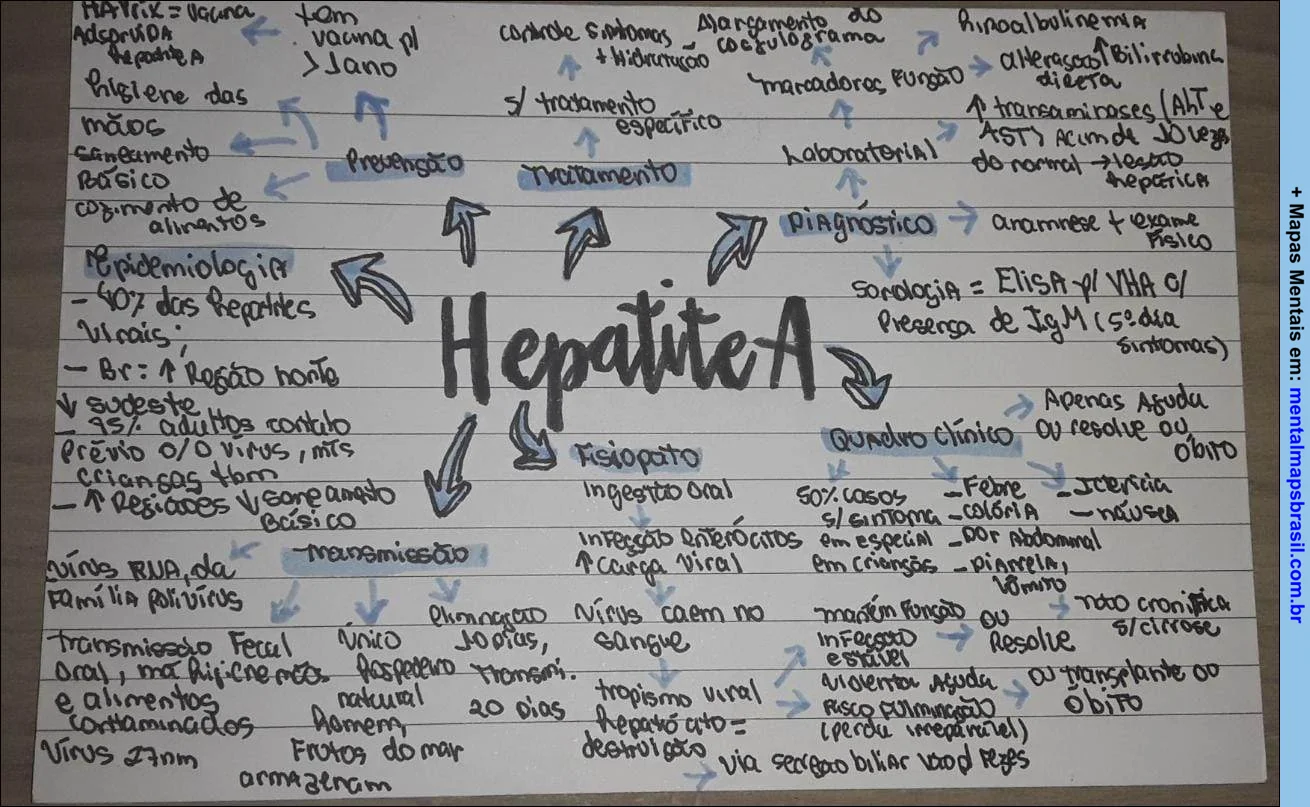 HAVrix = vacina
Adsorvida
Hepatite A
tem
vacina p/
> 1 ano
higiene das
mãos
saneamento
Básico
cozimento de
alimentos
Prevenção
controle sintomas
+ Hidratação
s/ tratamento
específico
Tratamento
Alargamento do
coagulograma
hipoalbulinemia
marcadores Função
alteração ↑ Bilirrubina
direta
Laboratorial
↑ transaminases (ALT e
AST) Acima de 10 vezes
do normal → lesão
hepática
Diagnóstico
anamnese + exame
Físico
Sorologia = Elisa p/ VHA c/
Presença de IgM (5º dia
sintomas)
Epidemiologia
- 40% das hepatites
virais;
- Br: ↑ Região norte
↓ sudeste
- 95% adultos contato
Prévio c/ o vírus, mts
crianças tbm
- ↑ Regiões ↓ saneamento
Básico
Hepatite A
Quadro Clínico
Apenas Aguda
ou resolve ou
Óbito
50% casos
s/ sintoma
em especial
em crianças
- Febre
- colúria
- Dor Abdominal
- Diarreia,
vômito
- Icterícia
- náusea
Fisiopato
Ingestão oral
Infecção Enterócitos
↑ Carga Viral
Vírus caem no
sangue
tropismo viral
hepatócito =
destruição
mantém Função
Infecção
estável
ou
Resolve
não cronifica
s/ cirrose
Violenta Aguda
Risco Fulminação
(perda irreparável)
ou transplante ou
Óbito
via secreção biliar vão p/ Fezes
Transmissão
Vírus RNA, da
Família Polivírus
transmissão Fecal
oral, má higiene mãos
e alimentos
contaminados
Vírus 27nm
Único
hospedeiro
natural
homem
Frutos do mar
armazenam
eliminação
10 dias,
transmi.
20 Dias
+ Mapas Mentais em: mentalmapsbrasil.com.br